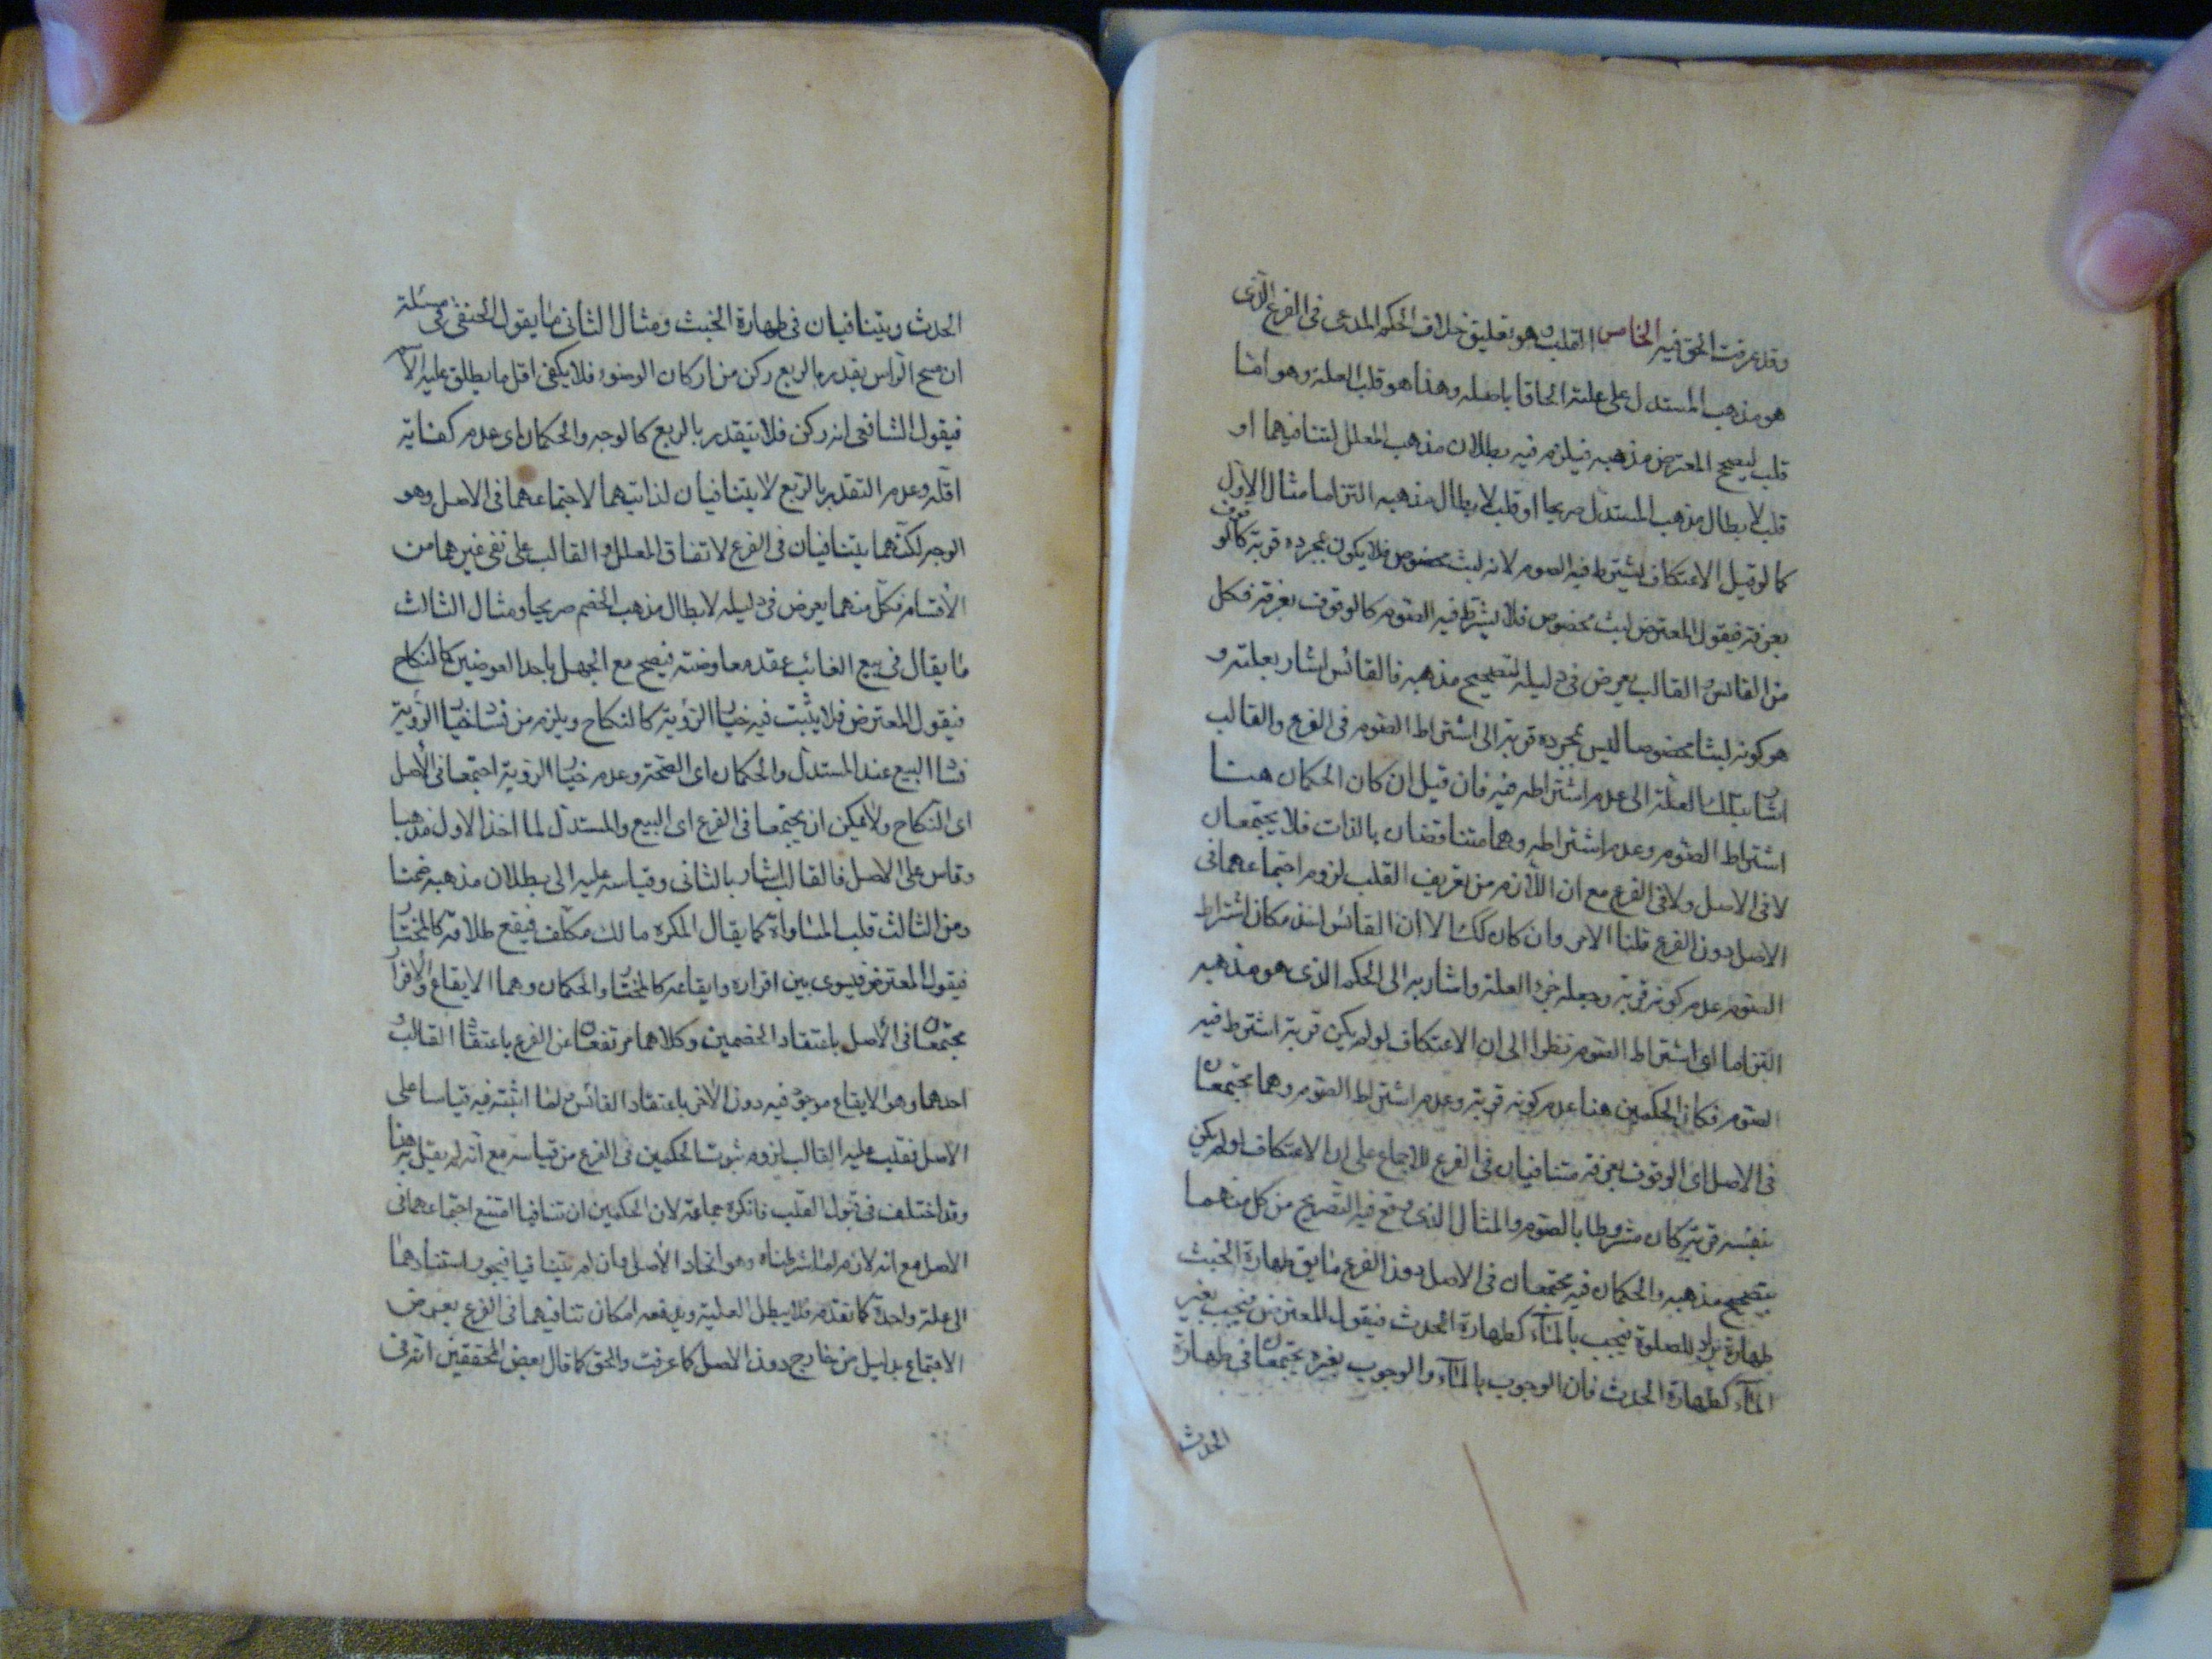 وقد عرفت الحق فيه الخامس القلب هو تعليق خلاف الحكم المدعى فى الفرع الذى
هو مذهب المستدل على علته الحاقا باصله وهذا هو قلب العلة وهو اما
قلب لتصحيح المعترض مذهبه فيلزم فيه بطلان مذهب المعلل لتنافيهما او
قلب لابطال مذهب المستدل صريحا او قلب لابطال مذهبه التزاما مثال الاول
كما لو قيل الاعتكاف يشترط فيه الصوم لانه لبث مخصوص فلا يكون بمجرده قربة كالوقوف
بعرفة فيقول المعترض لبث مخصوص فلا يشترط فيه الصوم كالوقوف بعرفة فكل
من القائس والقالب يعرض فى دليله لتصحيح مذهبه فالقائس اشار بعلته و
هو كونه لبثا مخصوصا ليس بمجرده قربة الى اشتراط الصوم فى الفرع والقالب
اشار بتلك العلة الى عدم اشتراطه فيه فان قيل ان كان الحكمان هنا
اشتراط الصوم وعدم اشتراطه وهما متناقضان بالذات فلا يجتمعان
لا فى الاصل ولا فى الفرع مع ان اللازم من تعريف القلب لزوم اجتماعهما فى
الاصل دون الفرع قلنا الامر وان كان كك الا ان القائس اخذ مكان اشتراط
الصوم عدم كونه قربة وجعله جزء العلة واشار به الى الحكم الذى هو مذهبه
التزاما اى اشتراط الصوم نظرا الى ان الاعتكاف لو لم يكن قربة اشترط فيه
الصوم فكان الحكمين هنا عدم كونه قربة وعدم اشتراط الصوم وهما يجتمعان
فى الاصل اى الوقوف بعرفة متنافيان فى الفرع للاجماع على ان الاعتكاف لو لم يكن
بنفسه قربة كان مشروطا بالصوم والمثال الذى وقع فيه التصريح من كل منهما
بتصحيح مذهبه والحكمان فيه مجتمعان فى الاصل دون الفرع ما يق طهارة الخبث
طهارة تراد للصلوة فيجب بالماء كطهارة الحدث فيقول المعترض فيجب بغير
الماء كطهارة الحدث فان الوجوب بالماء والوجوب بغيره يجتمعان فى طهارة
الحدث
الحدث ويتنافيان فى طهارة الخبث ومثال الثانى ما يقول الحنفى فى مسئلة
ان مسح الراس يقدر بالربع ركن من اركان الوضوء فلا يكفى اقل ما يطلق عليه الا
فيقول الشافعى انه ركن فلا يتقدر بالربع كالوجه والحكمان اى عدم كفاية
اقله وعدم التقدير بالربع لا يتنافيان لذاتيهما لاجتماعهما فى الاصل وهو
الوجه لكنهما يتنافيان فى الفرع لاتفاق المعلل والقالب على نفى غيرهما من
الاقسام فكل منهما يعرض فى دليله لابطال مذهب الخصم صريحا ومثال الثالث
ما يقال فى بيع الغائب عقد معاوضة فيصح مع الجهل باحد العوضين كالنكاح
فيقول المعترض فلا يثبت فيه خيار الرؤية كالنكاح ويلزم من فساد خيار الرؤية
فساد البيع عند المستدل والحكمان اى الصحة وعدم خيار الرؤية اجتمعا فى الاصل
اى النكاح ولا يمكن ان يجتمعا فى الفرع اى البيع والمستدل لما اخذ الاول مذهبا
وقاس على الاصل فالقالب اشار بالثانى وقياسه عليه الى بطلان مذهبه ضمنا
ومن الثالث قلب المساواة كما يقال المكره مالك مكلف فيقع طلاقه كالمختار
فيقول المعترض فيسوى بين اقراره وايقاعه كالمختار والحكمان وهما الايقاع والاقرار
مجتمعان فى الاصل باعتقاد الخصمين وكلاهما مرتفعان عن الفرع باعتقاد القالب و
احدهما وهو الايقاع موجود فيه دون الاخر باعتقاد القائس لما اثبته فيه قياسا على
الاصل فقلب عليه القالب لزوم ثبوت الحكمين فى الفرع من قياسه مع انه لم يقل به هنا
وقد اختلف فى قبول القلب فانكره جماعة لان الحكمين ان تنافيا امتنع اجتماعهما فى
الاصل مع انه لازم لما اشترطناه وهو اتحاد الاصل وان لم يتنافيا فيجوز استنادهما
الى علة واحدة كما تقدم فلا يبطل العلية ويدفعه امكان تنافيهما فى الفرع بعرض
الاجتماع بدليل من خارج دون الاصل كما عرفت والحق كما قال بعض المحققين انه فى